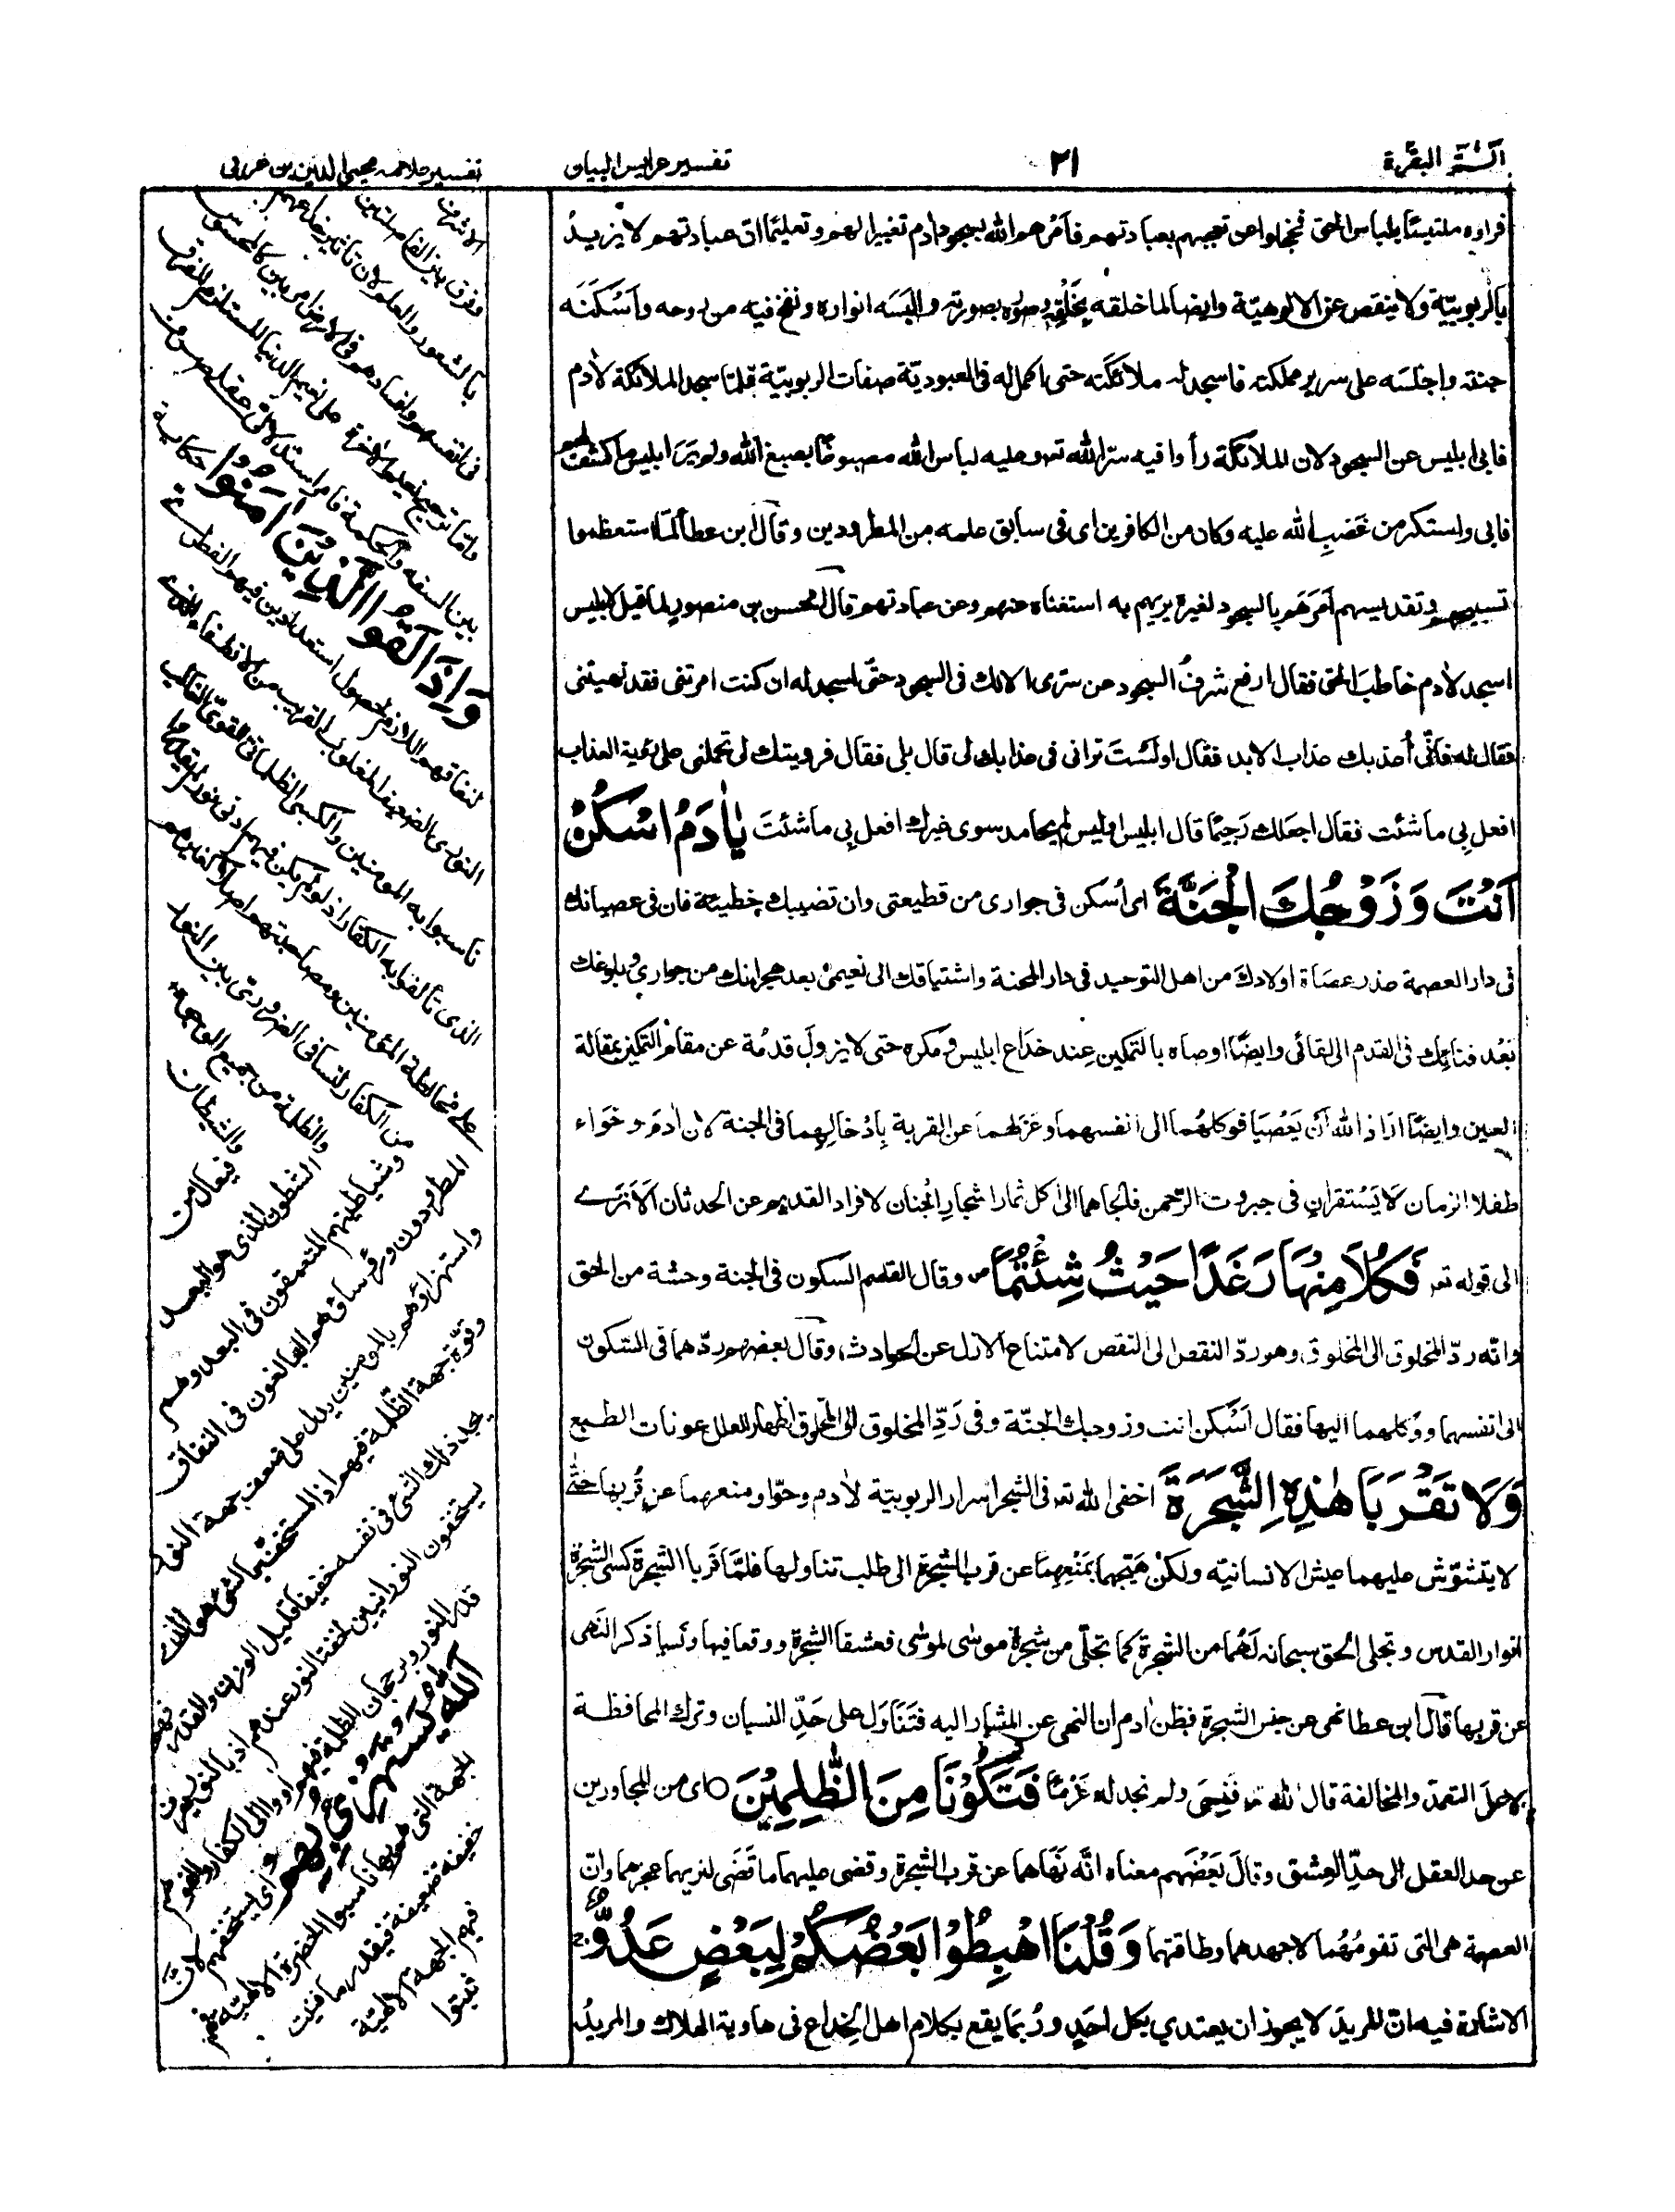 الٓمّٓ البقرة
٢١
تفسير عرايس البيان
تفسير علامه محيي الدين بن عربى
فراوه ملتبسًا بلباس الحق فخجلوا عن تعجبهم بعبادتهم فأمرهم الله بسجود ادم تغييرا لهم وتعليمًا ان عبادتهم لا يزيد
بالربوبيّة ولا ينقص عن الالوهيّة وايضا لما خلقه بخَلْقِه وصوّره بصورته والبَسَه انواره ونفخ فيه من روحه وأسْكنَه
جنته واجلسَه على سرير مملكته فاسجد له ملائكته حتى اكمل له فى العبوديّة صفات الربوبيّة فلمّا سجد الملائكة لاٰدم
فابى ابليس عن السجود لان الملائكة رأوا فيه سرّ الله تعـ وعليه لباس الله مصبوغًا بصبغ الله ولم يَرَ ابليس ما كشف لهم
فابى واستكبر من غَضبِ الله عليه وكان من الكافرين اى فى سابق علمه من المطرودين وقال ابن عطا لمّا استعظموا
تسبيحهم وتقديسهم اَمَرَهَم بالسجود لغيره يريهم به استغناه عنهم وعن عبادتهم قال الحسين بن منصور لما قيل لابليس
اسجد لاٰدم خاطبَ الحق فقال ارفع شرفُ السجود عن سرّى الا لك فى السجود حتّى اسجد له ان كنت امرتنى فقد نهيتنى
فقال له فانّى أعذبك عذاب الابد فقال اولَسْتَ ترانى فى عذابك لى قال بلى فقال فرويتك لى تحملنى على رئية العذاب
افعل بِى ما شئت فقال اجعلك رَجيمًا قال ابليس اوليس لم يحامد سوى غيرك افعل بِى ما شئتَ يٰاٰدَمُ اسْكُنْ
اَنْتَ وَزَوْجُكَ الْجَنَّةَ اى اُسكن فى جوارى من قطيعتى وان تضيبك خطيئة فان فى عصيانك
فى دار العصمة عذر عصَاة اولادك من اهل التوحيد فى دار المحنة واشتياقك الى نعيمى بعد هجرانك من جوارى وبلوغك
بَعْد فنائِك فى القدم الى لقائى وايضًا اوصاه بالتمكين عِند خدَاع ابليس و مكره حتى لا يزولَ قدمُه عن مقام التمكين بمقالة
لعين وايضًا اذا اراد الله أن يَعْصيَا فوكلهُما الى انفسهما وعَزَلهما عن القربة بِادْخالِهِما فى الجنة لان اٰدمَ وحَوَاء
طفلا الزمان لَا يَسْتقرانِ فى جبروت الرّحمن فالجاهما الى اكل ثمار اشجار الْجنان لافراد القديم عن الحدثان اَلَا تَرٰى
الى قوله تعـ فَكُلَا مِنْهَا رَغَدًا حَيْثُ شِئْتُمَا ص وقال القاسم السكون فى الجنة وحشة من الحق
وانّه ردّ المخلوق الى المخلوق وهو ردّ النقص الى النقص لامتناع الازل عن الحوادث وقال بعضهم ردّهما فى السّكون
الى انفسهما ووكلهما اليها فقال اَسْكن انت وزوجك الجنّة وفى رَدِّ المخلوق الى المخلوق اظهار العلل عونات الطبع
وَلَا تَقْرَبَا هٰذِهِ الشَّجَرَةَ اخفى الله تعـ فى الشجر اسرار الربوبيّة لاٰدم وحوّا ومنعهما عن قُربها حتّى
لا يتشوّش عليهما عيش الانسانيّه ولكن هَيّجهما بمَنْعِهِمَا عن قرب الشجرة الى طلب تناولها فلمّا قَربا الشجرة كسى الشجرة
انوار القدس وتجلى الحق سبحانه لَهُما من الشجرة كما تجلّى من شجرة موسٰى لموسٰى فعشقا الشجرة ووقعا فيها ونَسيا ذكر النّهى
عن قربها قال ابن عطا نهى عن جنس الشجرة فظن اٰدم ان النهى عن المشار اليه فتَنَاوَل على حَدِّ النسيان وترك المحافظة
لا على التعمّد والمخالفة قال الله تعـ فَنَسِىَ ولم نجد له عَزمًا فَتَكُوْنَا مِنَ الظّٰلِمِيْنَ ○ اى من المجاورين
عن حد العقل الى حدّ العِشق وقال بَعْضهم معناه انّه نَهَاهما عن قرب الشجرة وقضى عليهما ما قَضَى لنريهما عجزهما وان
العصمة هى التى تقومُهُما لا جهدهما وطاقتهما وَقُلْنَا اهْبِطُوْا بَعْضُكُمْ لِبَعْضٍ عَدُوٌّ ج
الاشارة فيه ان المريدَ لا يجوز ان يعتدي بكل احَدٍ ورُبما يقع بكلام اهل الخِداع فى هاوية الهلاك والمريدُ
وَاِذَا لَقُوا الَّذِيْنَ اٰمَنُوْا حكاية
لنفاقهم اللازم لحصول استعدادين فيهم الفطرى
النورى الضعيف المغلوب القريب من الانطفاء الذى
ناسبوا به المومنين والكسبى الظلمانى القوىّ الغالب
الذى تألفوا به الكفار اذ لو لم يكن فيهم ادنى نور لم يقدروا
على مخالطة المؤمنين ومصاحبتهم اصلا كغيرهم
من الكفار لتنافى الضرورى بين النور
والظلمة من جميع الوجوه
والشيطان
فيعال من
الشطون الذى هو البعد
وشياطينهم المتعمقون فى البعد وهم
المطرودون ورؤساؤهم البالغون فى النفاق
واستهزاؤهم بالمومنين يدل على ضعف جهة النور
وقوّة جهة الظلمة فيهم اذ المستخف بالشئ هو الذى
يجد ذلك الشئ فى نفسه خفيفا قليل الوزن والقدر فهم
يستخفون النورانيين لخفة النور عندهم اذ بالنور يعرف
قدر النور وبرجحان الظلمة فيهم اووا الى الكفار والفوهم
اَللّٰهُ يَسْتَهْزِئُ بِهِمْ اى يستخفهم لان
الجهة التى هم بها ناسبوا الحضرة الالٰهيّة فيهم
خفيفة ضعيفة فبقدر ما فنيت
فيهم الجهة الالٰهيّة
ثبتوا